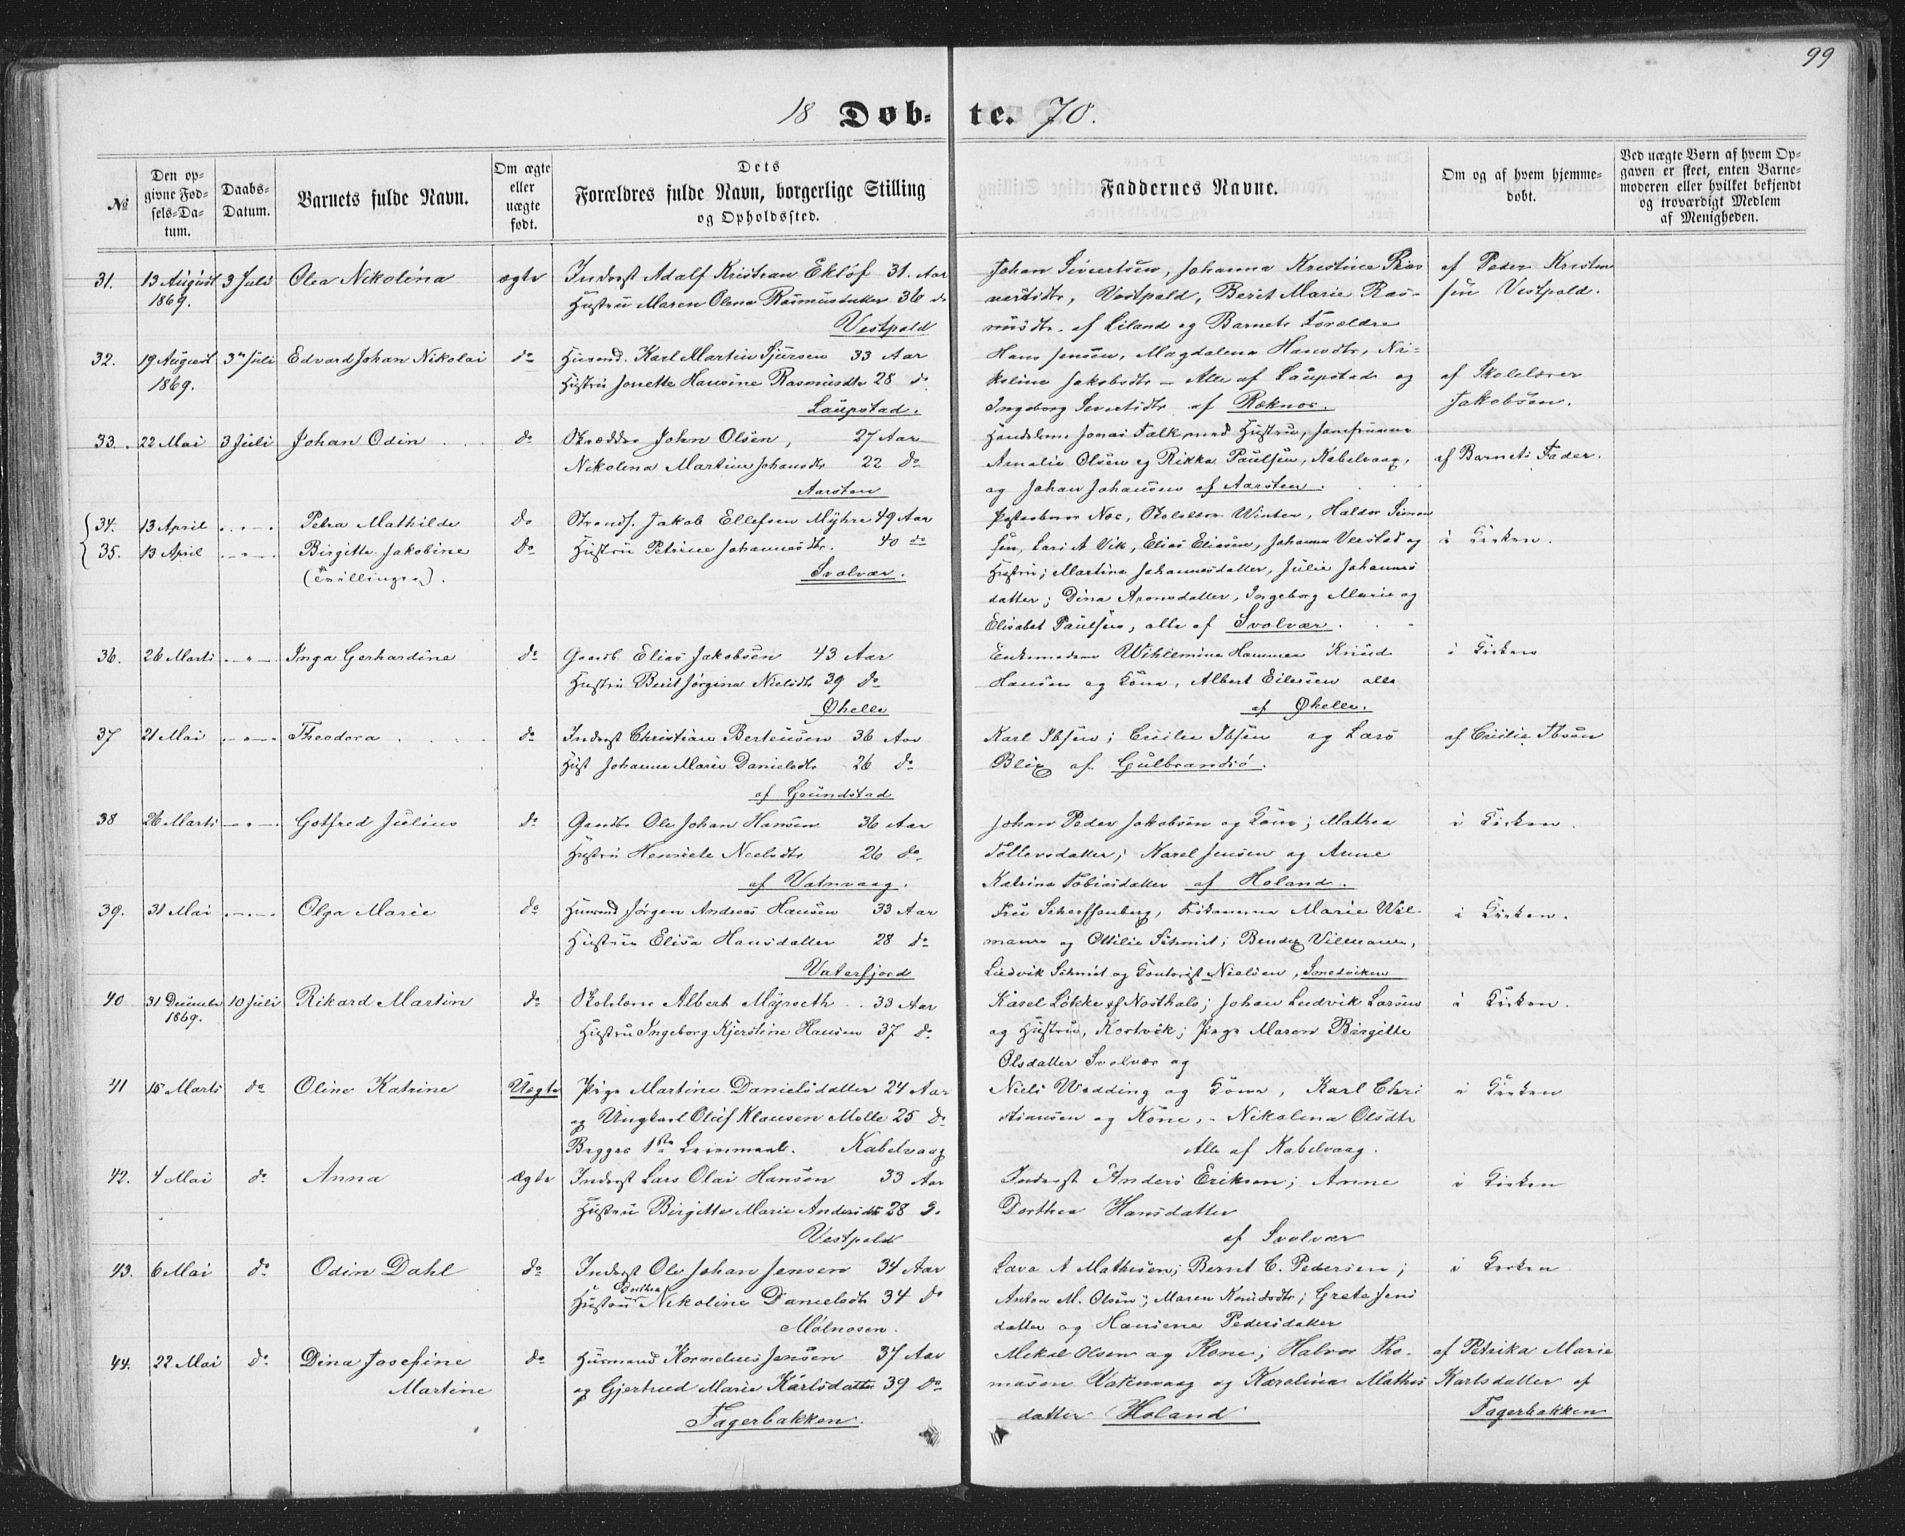 99
18 Døb- te. 70.
№
Den opgivne Fødsels-Datum.
Daabs-Datum.
Barnets fulde Navn.
Om ægte eller uægte født.
Dets Forældres fulde Navn, borgerlige Stilling og Opholdssted.
Faddernes Navne.
Om og af hvem hjemmedøbt.
Ved uægte Børn af hvem Opgaven er skeet, enten Barnemoderen eller hvilket bekjendt og troværdigt Medlem af Menigheden.
31. 13 August 3 Juli Olea Nikolina ægte Inderst Adolf Kristian Ekløf 31. Aar Johan Sivertsen, Johanna Kristine af Peder Kristen
1869. Hustru Maren Olena Rasmusdatter 36 do Vestpold, Berit Marie Ras- sen Vestpold.
Vestpold musdtr. af Liland og Barnets Forældre
32. 19 August 3 Juli Edvard Johan Nikolai do Husmd. Karl Martin Sjursen 33 Aar Hans Jensen, Magdalena Hansdtr, Ni-
1869. Hustru Jonette Hansine Rasmusdtr 28 do koline Jakobsdtr - Alle af Laupstad og af Skolelærer
Laupstad. Ingeborg Sivertsdtr af Røknes. Jakobsen.
33. 22 Mai 3 Juli Johan Odin do Skrædder John Olsen, 27 Aar Jonas Falk med Hustru, Jomfruerne
Nikolina Martine Johansdtr 22 do Amalie Olsen og Rikka Paulsen, Kabelvaag, af Barnets Fader.
Aarsten og Johan Johansen af Aarsten.
34. 13 April Petra Mathilde do Strands. Jakob Ellefsen Myhre 49 Aar Winter, Haldor Simon
35. 13 April Birgitte Jakobine do Hustru Petrine Johannesdtr. 40 do sen, Lars A Vik, Elias Eliasen, Johannes og i Kirken.
(Tvillinger). Svolvær. Hustru; Martina Johannesdatter, Julie Johannes
datter; Dina Aronsdatter, Ingeborg Marie og
Elisabet Paulsen, alle af Svolvær.
36. 26 Marts Inga Gerhardine do Gaardb. Elias Jakobsen 43 Aar Enkemadame Wihlemine Hammer Knud i Kirken
Hustru Berit Jørgina Nielsdtr 39 do Hansen og Kone, Albert Eilersen alle
Øhelle af Øhelle.
37 21 Mai Theodora do Inderst Christian Berteusen 36 Aar Karl Ibsen; Cecilie Ibsen og Lars af Cecilie Ibsen
Hust Johanne Marie Danielsdtr 26 do Blix af Gulbrandsø.
af Grundstad
38 26 Marts Gotfred Julius do Gaardbr Ole Johan Hansen 36 Aar Johan Peder Jakobsen og Kone; Mathea i Kirken.
Hustru Henriete Nielsdtr 26 do Tollevsdatter; Karel Jensen og Anne
af Vatnvaag. Katrina Tobiasdatter af Holand.
39. 31 Mai Olga Marie do Husmd Jørgen Andreas Hansen 33 Aar Fru Scheffenberg, Frøknerne Marie Wil- i Kirken.
Hustru Elisa Hansdatter 28 do manns og Ottilie Schmit; Bendix Vilmann,
Vaterfjord Ludvik Schmit og Contorist Nielsen, Smedviken
40 31 December 10 Juli Rikard Martin do Skolelærer Albert Myrseth 33 Aar Karel Løkke af Nosthals; Johan Ludvik Larsen i Kirken.
1869. Hustru Ingeborg Kjerstine Hansen 37 do og Hustru, Kortvik; Pige Maren Birgitte
Olsdatter Svolvær og
41 15 Marts do Oline Katrine Uægte Pige Martine Danielsdatter 24 Aar Niels Wedding og Kone, Karl Chri i Kirken
og Ungkarl Oluf Klausen Molle 25 do stiansen og Kone, - Nikolena Olsdtr
Begges 1ste Leiermaal. Kabelvaag Alle af Kabelvaag.
42. 4 Mai do Anna ægte Inderst Lars Olai Hansen 33 Aar Inderst Anders Eriksen; Anne i Kirken
Hustru Birgitte Marie Andersdtr 28 do Dorthea Hansdatter
Vestpold af Svolvær
43. 6 Mai do Odin Dahl do Inderst Ole Johan Jensen 34 Aar Lava A Mathisen; Bernt C. Pedersen; i Kirken
Hustru Dorthea Nikoline Danielsdtr 34 do Anton M. Olsen; Maren Knudsdtr; Grete Jens
Mølnosen. datter og Hansine Pedersdatter
44. 22 Mai do Dina Josefine do Husmand Kornelius Jensen 37 Aar Mikal Olsen og Kone; Halvor Tho- af Petrika Marie
Martine og Gjertrud Marie Karlsdatter 39 do masen Vatnvaag og Karolina Mathis Karlsdatter af
Fagerbakken. datter Holand Fagerbakken